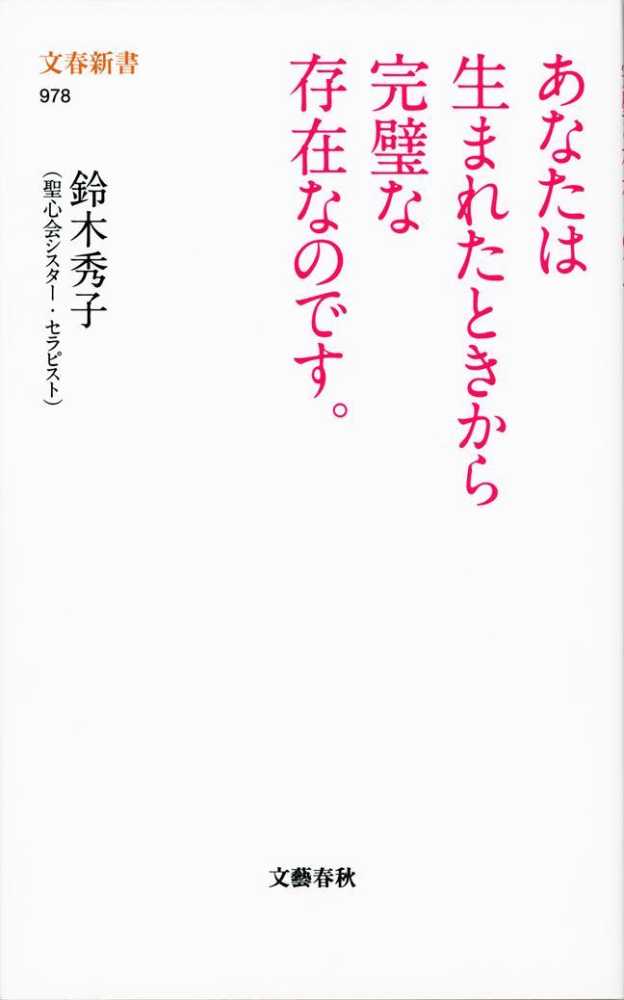 あなたは
生まれたときから
完璧な
存在なのです。
鈴木秀子
(聖心会シスター・セラピスト)
文春新書
978
文藝春秋